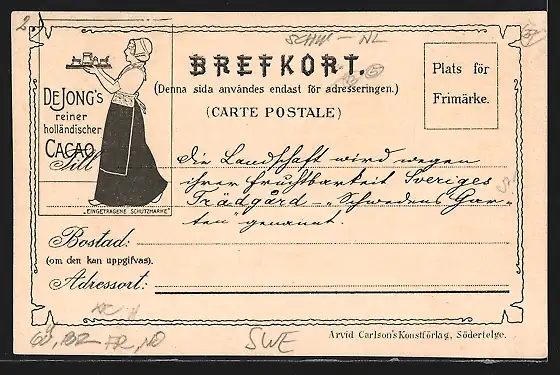 2.
SCHW - NL
BREFKORT.
(Denna sida användes endast för adresseringen.)
(CARTE POSTALE)
Plats för
Frimärke.
DE JONG'S
reiner
holländischer
CACAO
"EINGETRAGENE SCHUTZMARKE"
Till
die Landschaft wird wegen
ihrer Fruchtbarkeit Sveriges
Trädgård - „Schwedens Gar-
ten" genannt.
Bostad:
(om den kan uppgifvas).
Adressort:
SWE
Arvid Carlson's Konstförlag, Södertelge.